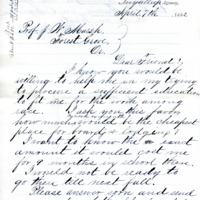 April 7th 1882
Prof. J. W. Marsh,
Forest Grove,
Or.
Dear Friend:
I know you would be
willing to help me in my trying
to procure a sufficient education
to fit me for the work among
my race. I ask you this favor
how much would be the cheapest
place for board & lodging?
I want to know the exact
amount it would cost me
for 9 months in school there.
I would not be ready to
go there till next fall.
Please answer soon and send